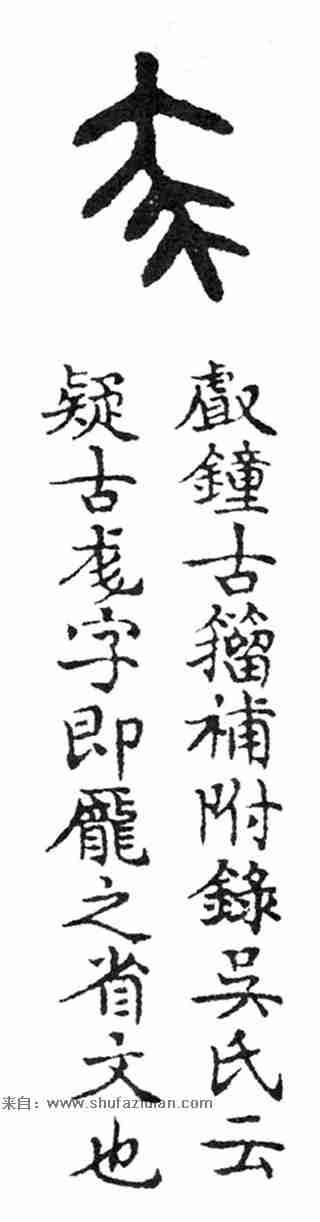 鐘古籀補附錄吳氏云
疑古尨字即龎之省文也
来自：www.shufazidian.com